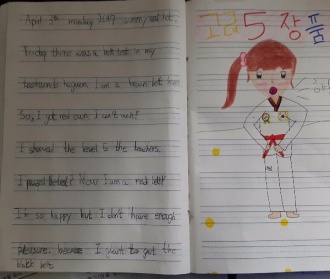 April 5th monday 2019 sunny and hot.
Friday there was a belt test in my
taekwondo hagwon. I am a brown belt
So, I got red own I can't wait!
I showed the level 5 to the teachers.
I passed the test! Now I am a red belt!
I'm so happy but I don't have enough
pleasure. because I want to get the
black belt.
고급5장품